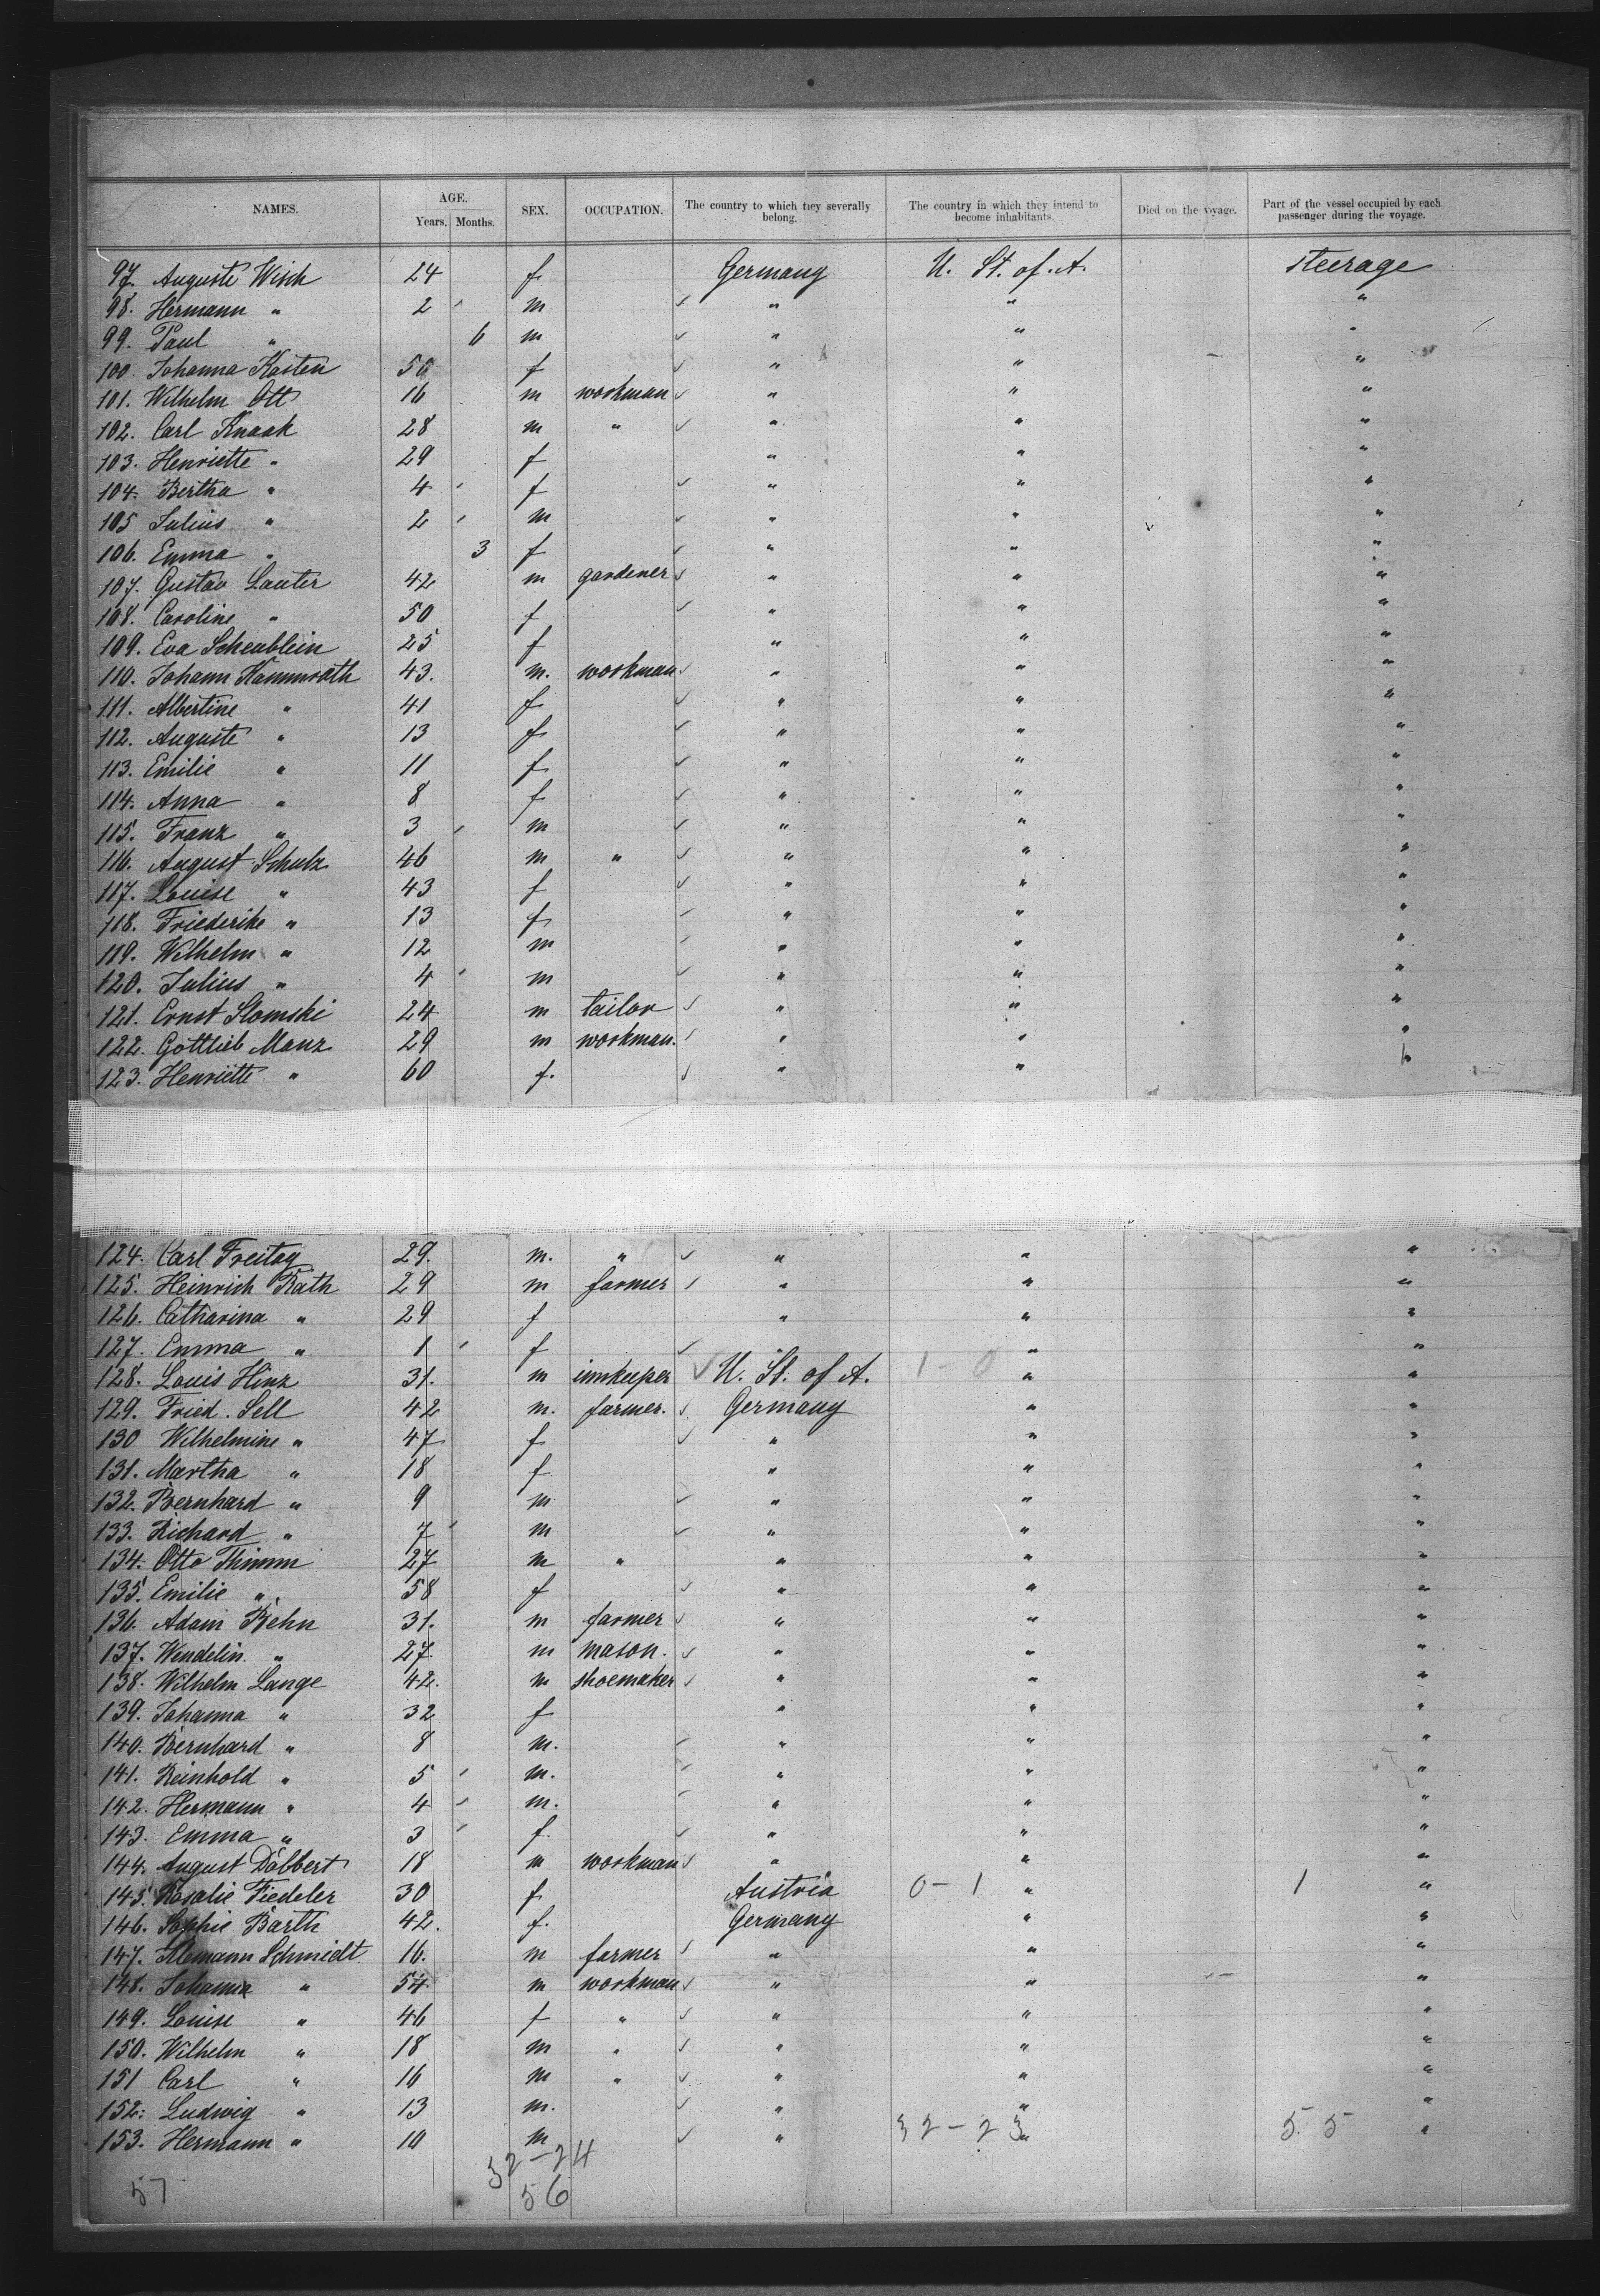 NAMES. AGE. Years. Months. SEX. OCCUPATION. The country to which they severally belong. The country in which they intend to become inhabitants. Died on the voyage. Part of the vessel occupied by each passenger during the voyage.
97. Auguste Wish 24 f Germany U. St. of. A. Steerage
98. Hermann " 2 m " " "
99. Paul " 6 m " " "
100. Johanna Kasten 50 f " " "
101. Wilhelm Ott 16 m workman " " "
102. Carl Knaak 28 m " " " "
103. Henriette " 29 f " " "
104. Bertha " 4 f " " "
105 Julius " 2 m " " "
106. Emma " 3 f " " "
107. Gustav Lauter 42 m gardener " " "
108. Caroline " 50 f " " "
109. Eva Scheublein 25 f " " "
110. Johann Kammrath 43. m. workman " " "
111. Albertine " 41 f " " "
112. Auguste " 13 f " " "
113. Emilie " 11 f " " "
114. Anna " 8 f " " "
115. Franz " 3 m " " "
116. August Schulz 46 m " " " "
117. Louise " 43 f " " "
118. Friederike " 13 f " " "
119. Wilhelm " 12 m " " "
120. Julius " 4 m " " "
121. Ernst Slomski 24 m tailor " " "
122. Gottlieb Manz 29 m workman. " " "
123. Henriette " 60 f. " " "
124. Carl Freitag 29. m. " " " "
125. Heinrich Rath 29 m farmer " " "
126. Catharina " 29 f " " "
127. Emma " 1 f " "
128. Louis Hinz 31. m innkeeper U. St. of A. 1-0 " "
129. Fried. Sell 42 m. farmer. Germany " "
130 Wilhelmine " 47 f " " "
131. Martha " 18 f " " "
132. Bernhard " 9 m " " "
133. Richard " 7 m " " "
134. Otto Thimm 27 m " " " "
135. Emilie " 58 f " " "
136. Adam Behn 31. m farmer " " "
137. Wendelin " 27. m mason. " " "
138. Wilhelm Lange 42. m shoemaker " " "
139. Johanna " 32 f " " "
140. Bernhard " 8 m. " " "
141. Reinhold " 5 m. " " "
142. Hermann " 4 m. " " "
143. Emma " 3 f " " "
144. August Dobbert 18 m workman " " "
145. Rosalie Fiedeler 30 f Austria 0-1 " 1 "
146. Sophie Barth 42. f. Germany " "
147. Schmidt 16. m farmer " " "
148. " 54. m workman " " "
149. Louise " 46 f " " " "
150. Wilhelm " 18 m " " " "
151 Carl " 16 m " " " "
152. Ludwig " 13 m. " " "
153. Hermann " 10 m " 32-23 " 55 "
32-24
57 56